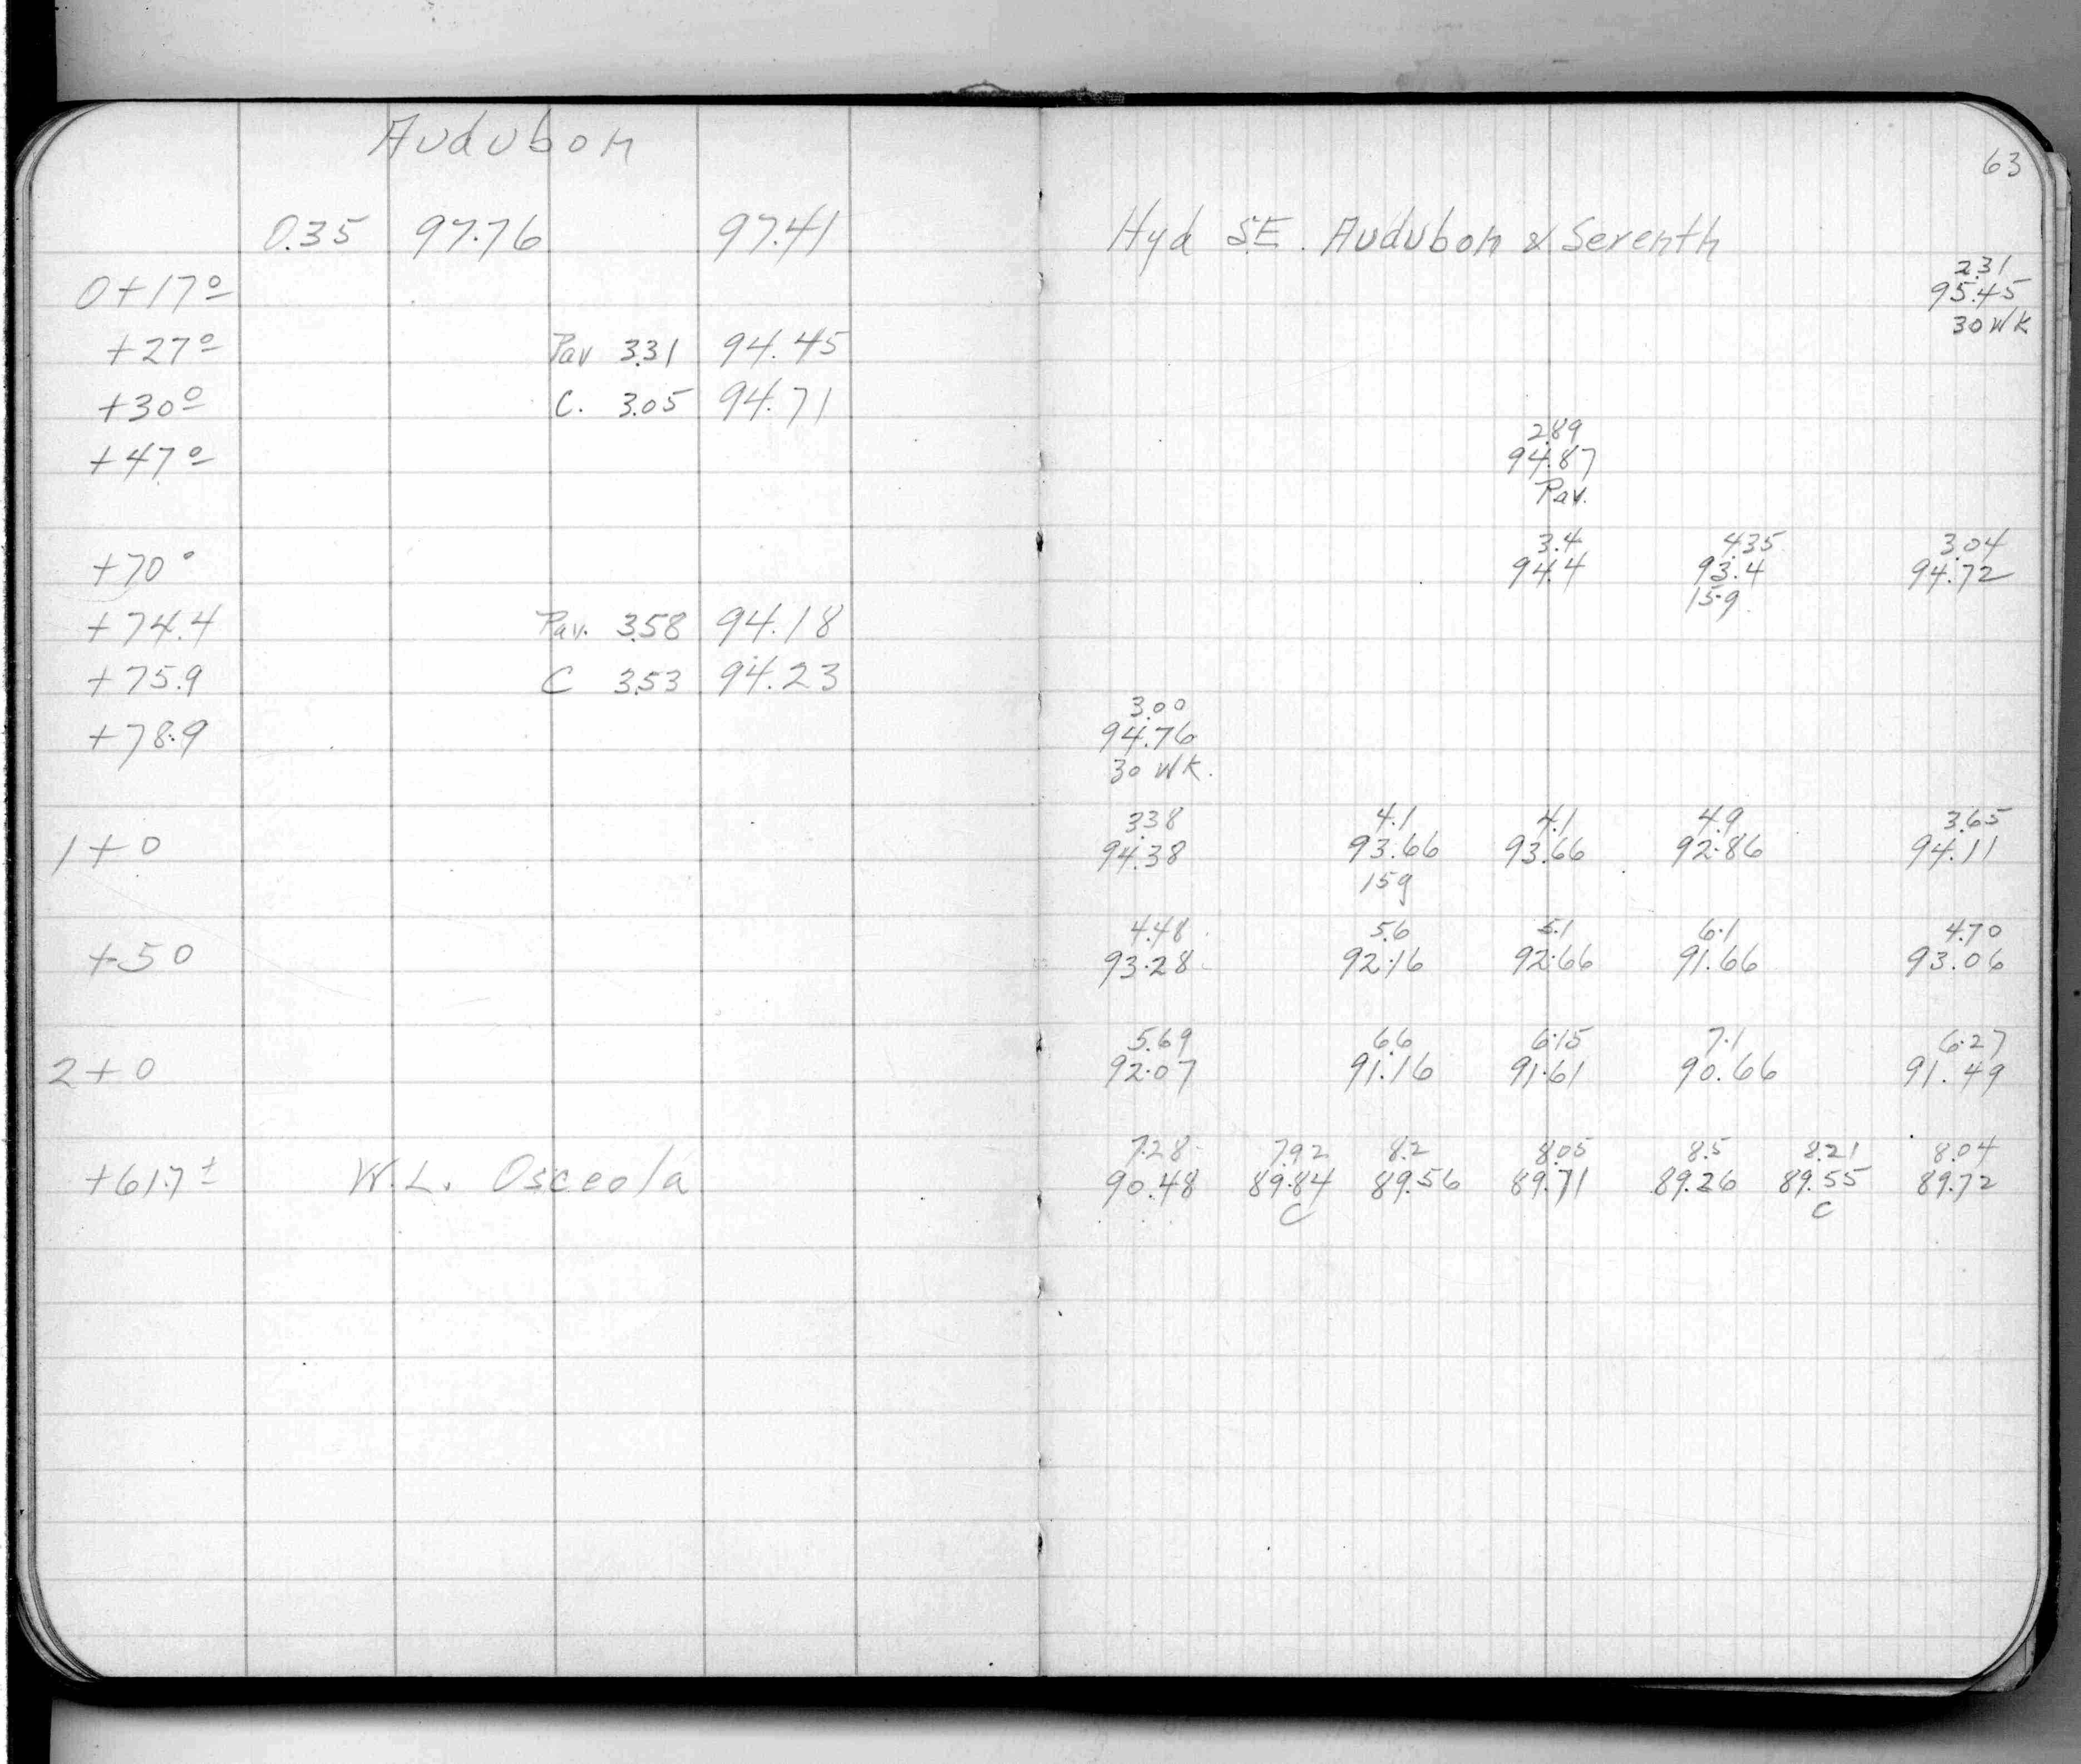 Audubon
63
0.35 97.76 97.41 Hyd S.E. Audubon & Seventh
2.31
0+17º 95.45
30 WK
+27º Pav 3.31 94.45
+30º C. 3.05 94.71
2.89
+47º 94.87
Pav.
3.4 4.35 3.04
+70º 94.4 93.4 94.72
15 g
+74.4 Pav. 3.58 94.18
+75.9 C 3.53 94.23
3.00
+78.9 94.76
30 WK.
3.38 4.1 4.1 4.9 3.65
1+0 94.38 93.66 93.66 92.86 94.11
15 g
4.48 5.6 5.1 6.1 4.70
+50 93.28 92.16 92.66 91.66 93.06
5.69 6.6 6.15 7.1 6.27
2+0 92.07 91.16 91.61 90.66 91.49
7.28 7.92 8.2 8.05 8.5 8.21 8.04
+61.7 ± W.L. Osceola 90.48 89.84 89.56 89.71 89.26 89.55 89.72
C C